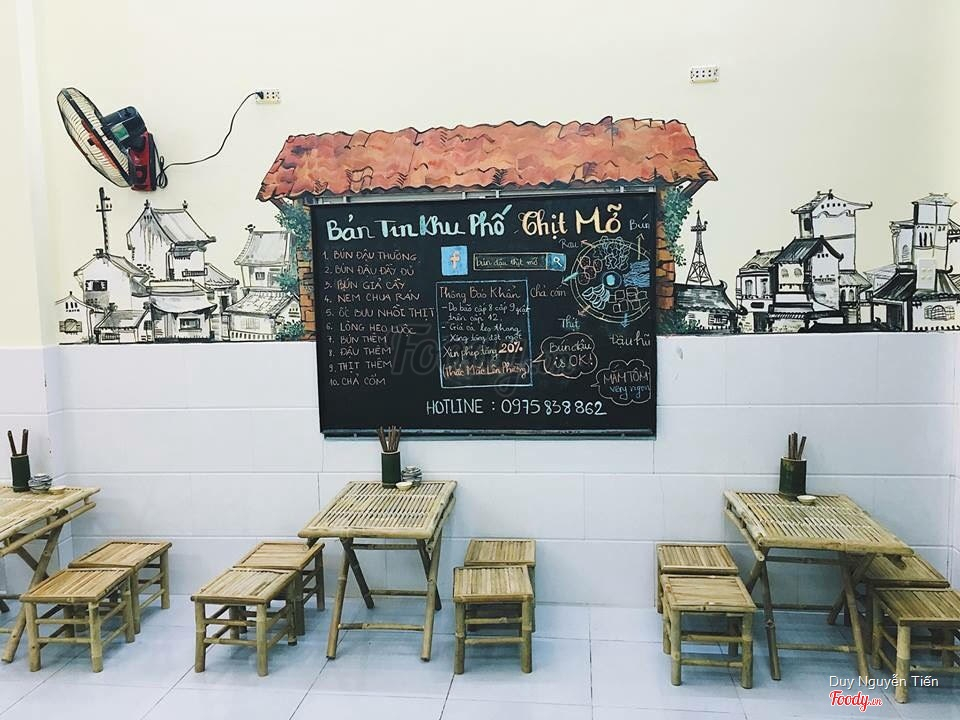 Bản Tin Khu Phố Thịt Mỡ
1. BÚN ĐẬU THƯỜNG
2. BÚN ĐẬU ĐẦY ĐỦ
3. BÚN GIẢ CẦY
4. NEM CHUA RÁN
5. ỐC BƯU NHỒI THỊT
6. LÒNG HEO LUỘC
7. BÚN THÊM
8. ĐẬU THÊM
9. THỊT THÊM
10. CHẢ CỐM
f bún đậu thịt mỡ
Thông Báo Khẩn
- Do bão cấp 8 cấp 9 giật trên cấp 12.
- Giá cả leo thang
- Xăng tăng đắt
Xin phép tăng 20%
(Thắc Mắc Lên Phường)
Bún
Rau
Chả cốm
Thịt
tàu hũ
Bún đậu
is OK!
MẮM TÔM
very ngon
HOTLINE : 0975 838 862
Duy Nguyễn Tiến
Foody.vn
Foody